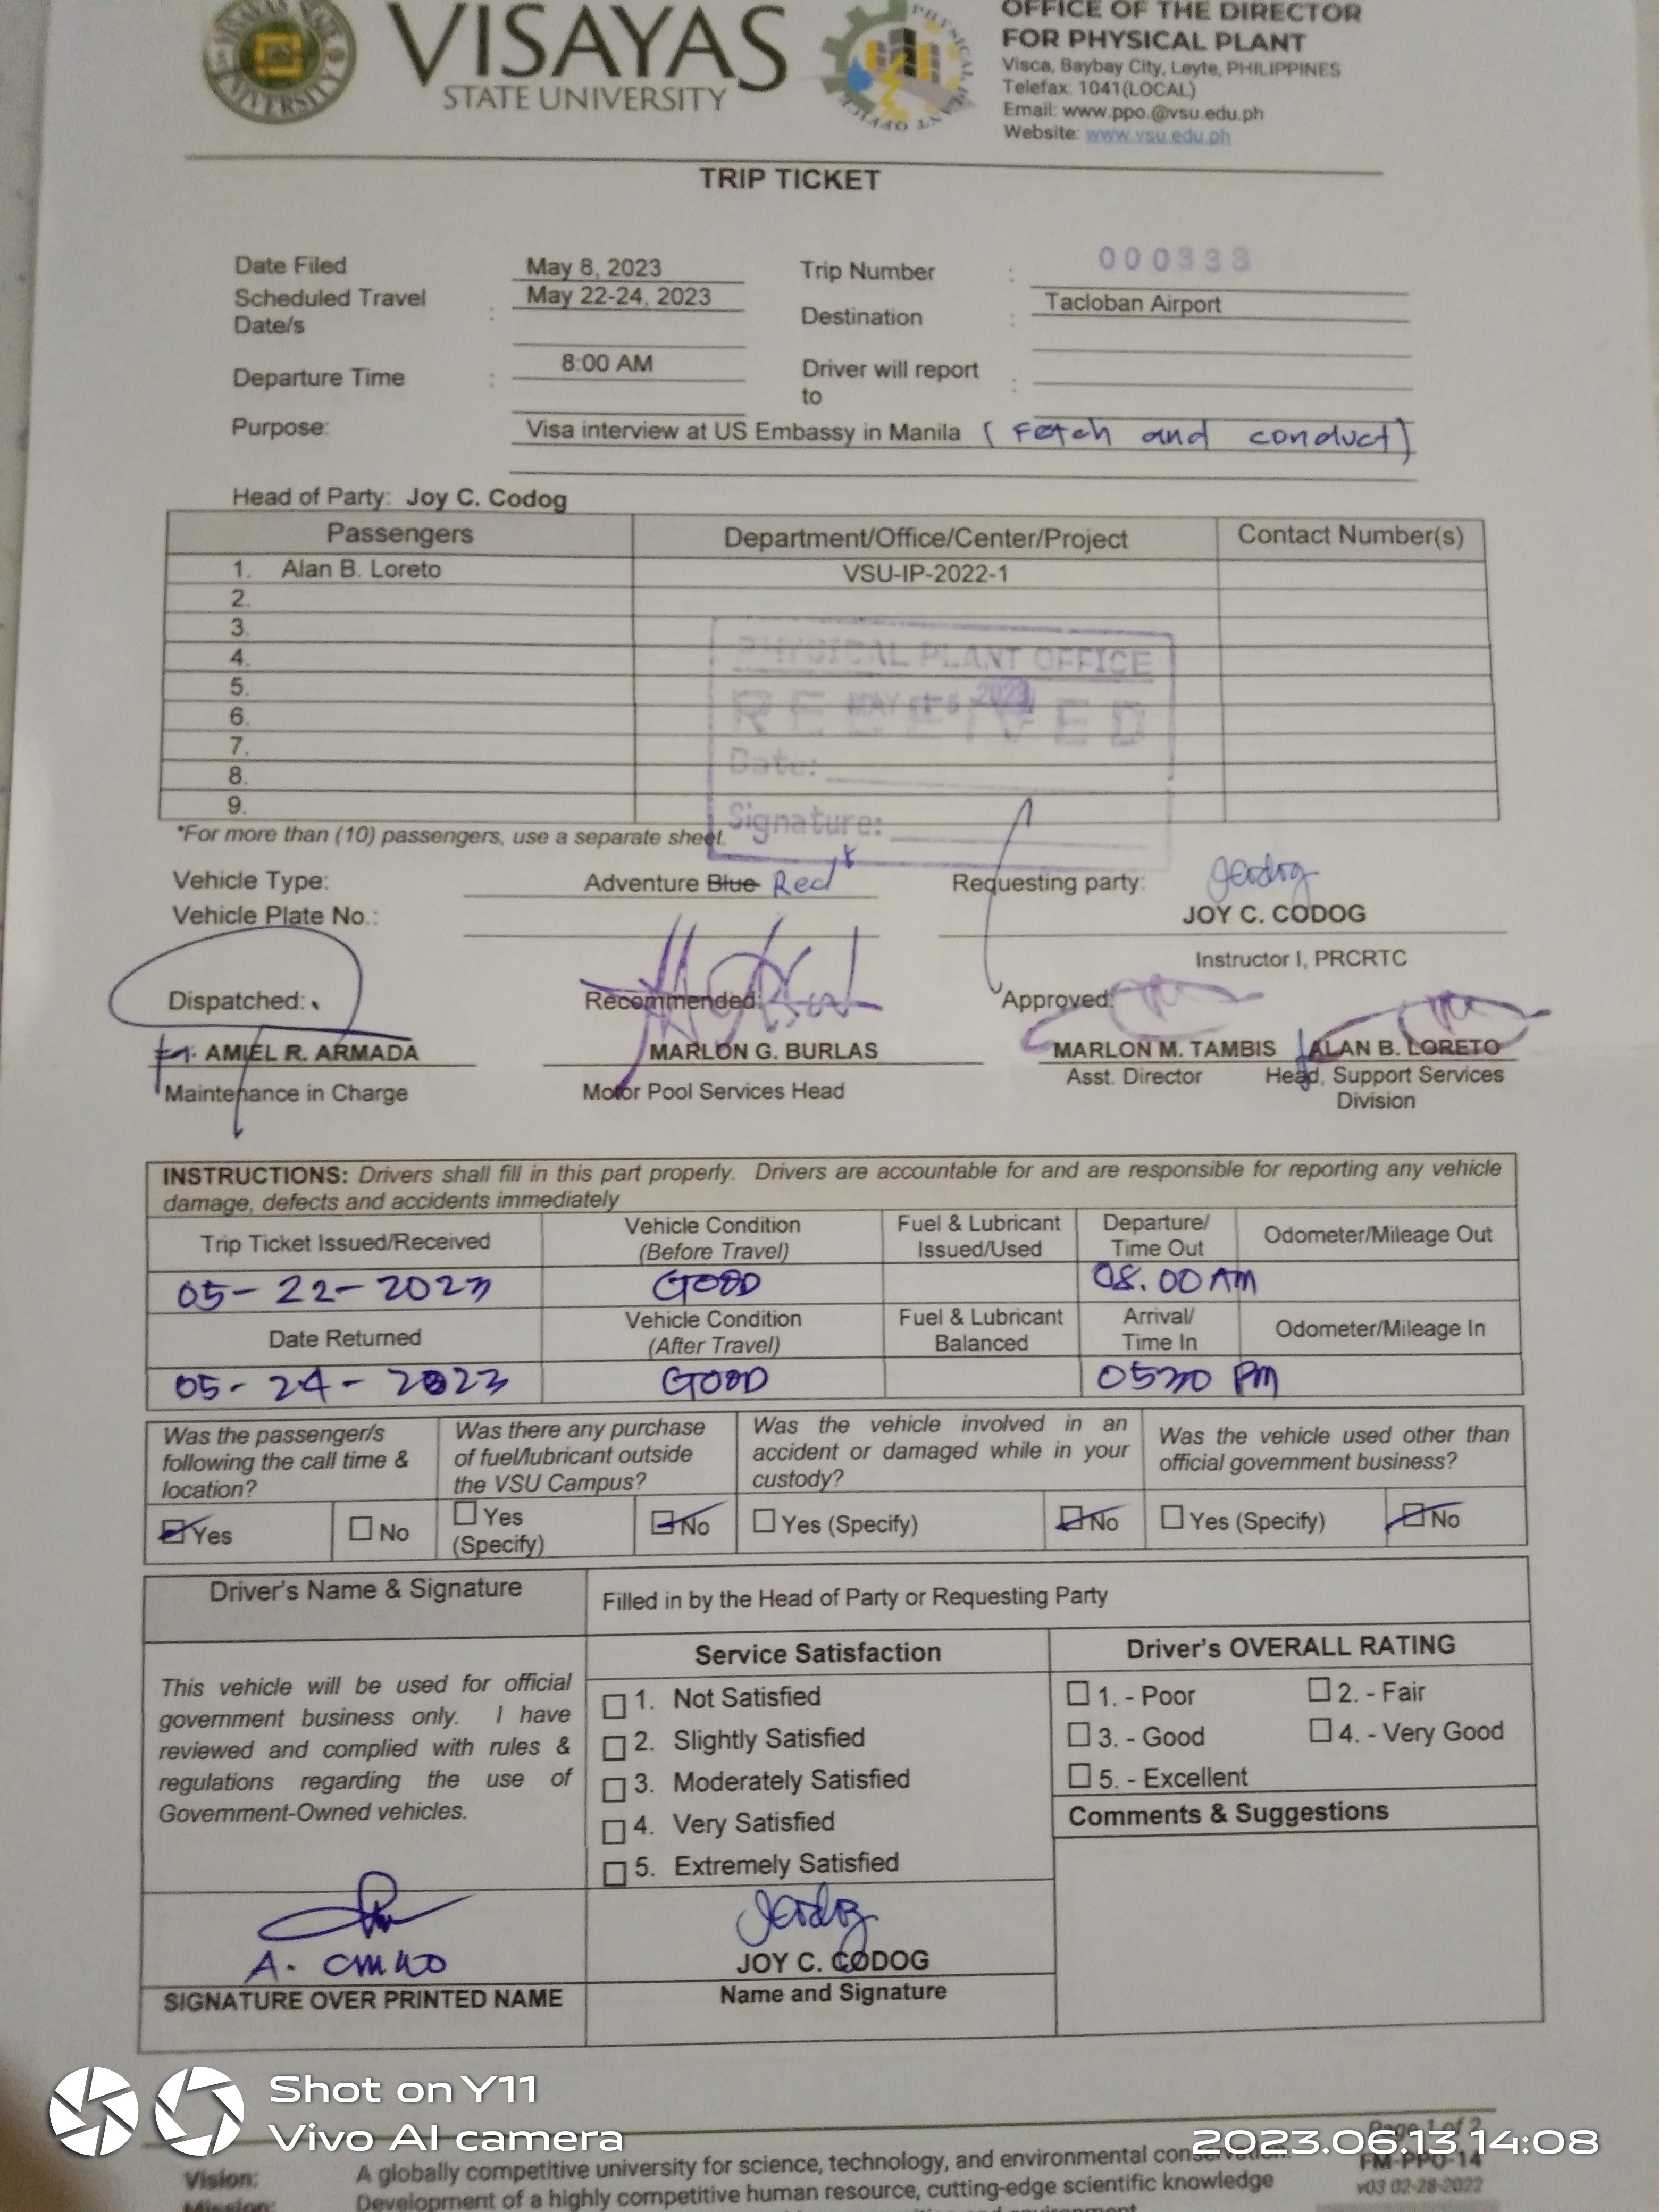 VISAYAS
STATE UNIVERSITY
OFFICE OF THE DIRECTOR
FOR PHYSICAL PLANT
Visca, Baybay City, Leyte, PHILIPPINES
Telefax: 1041(LOCAL)
Email: www.ppo.@vsu.edu.ph
Website: www.vsu.edu.ph
TRIP TICKET
Date Filed May 8, 2023 Trip Number : 000333
Scheduled Travel Date/s : May 22-24, 2023 Destination : Tacloban Airport
Departure Time : 8:00 AM Driver will report to :
Purpose: Visa interview at US Embassy in Manila (Fetch and conduct)
Head of Party: Joy C. Codog
Passengers Department/Office/Center/Project Contact Number(s)
1. Alan B. Loreto VSU-IP-2022-1
2.
3.
4.
5.
6.
7.
8.
9.
PHYSICAL PLANT OFFICE
RECEIVED
MAY 2023
Date:
Signature:
*For more than (10) passengers, use a separate sheet.
Vehicle Type: Adventure Blue Red Requesting party:
Vehicle Plate No.: JOY C. CODOG
Instructor I, PRCRTC
Dispatched: Recommended: Approved:
AMIEL R. ARMADA MARLON G. BURLAS MARLON M. TAMBIS ALAN B. LORETO
Maintenance in Charge Motor Pool Services Head Asst. Director Head, Support Services
Division
INSTRUCTIONS: Drivers shall fill in this part properly. Drivers are accountable for and are responsible for reporting any vehicle
damage, defects and accidents immediately
Trip Ticket Issued/Received Vehicle Condition (Before Travel) Fuel & Lubricant Issued/Used Departure/ Time Out Odometer/Mileage Out
05-22-2023 GOOD 08.00 AM
Date Returned Vehicle Condition (After Travel) Fuel & Lubricant Balanced Arrival/ Time In Odometer/Mileage In
05-24-2023 GOOD 0530 PM
Was the passenger/s following the call time & location? Was there any purchase of fuel/lubricant outside the VSU Campus? Was the vehicle involved in an accident or damaged while in your custody? Was the vehicle used other than official government business?
Yes No Yes (Specify) No Yes (Specify) No Yes (Specify) No
Driver's Name & Signature Filled in by the Head of Party or Requesting Party
Service Satisfaction Driver's OVERALL RATING
This vehicle will be used for official
government business only. I have
reviewed and complied with rules &
regulations regarding the use of
Government-Owned vehicles.
1. Not Satisfied
2. Slightly Satisfied
3. Moderately Satisfied
4. Very Satisfied
5. Extremely Satisfied
1. - Poor 2. - Fair
3. - Good 4. - Very Good
5. - Excellent
Comments & Suggestions
A.
JOY C. CODOG
SIGNATURE OVER PRINTED NAME Name and Signature
Shot on Y11
Vivo AI camera
2023.06.13 14:08
Page 1 of 2
FM-PPO-14
v03 02-28-2022
Vision: A globally competitive university for science, technology, and environmental conservation.
Mission: Development of a highly competitive human resource, cutting-edge scientific knowledge